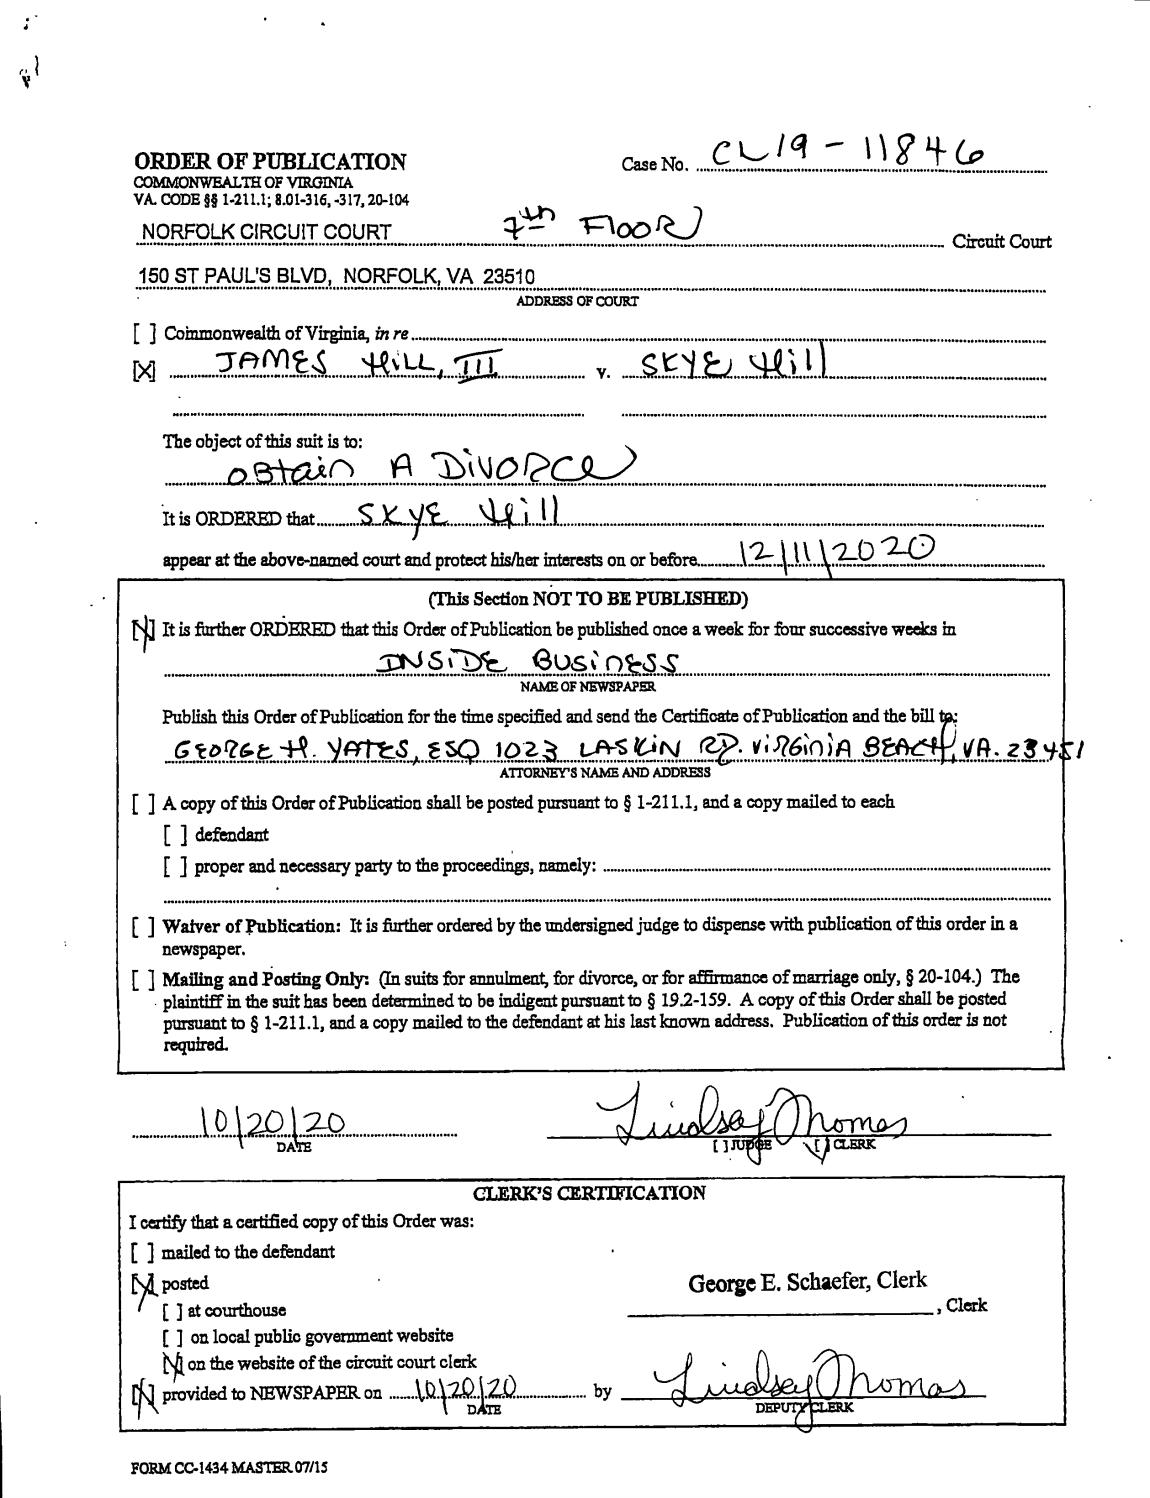 ORDER OF PUBLICATION
Case No. CL19-11846
COMMONWEALTH OF VIRGINIA
VA. CODE §§ 1-211.1; 8.01-316, -317, 20-104
NORFOLK CIRCUIT COURT 7th FlooR Circuit Court
150 ST PAUL'S BLVD, NORFOLK, VA 23510
ADDRESS OF COURT
[ ] Commonwealth of Virginia, in re
[X] JAMES HiLL, III v. SKYE Hill
The object of this suit is to:
OBtain A DiVORCe
It is ORDERED that SKYE Hill
appear at the above-named court and protect his/her interests on or before 12/11/2020
(This Section NOT TO BE PUBLISHED)
[X] It is further ORDERED that this Order of Publication be published once a week for four successive weeks in
INSiDE BUSinESS
NAME OF NEWSPAPER
Publish this Order of Publication for the time specified and send the Certificate of Publication and the bill to:
GEORGE H. YATES, ESQ 1023 LASKiN RD. ViRGiniA BEACH, VA. 23451
ATTORNEY'S NAME AND ADDRESS
[ ] A copy of this Order of Publication shall be posted pursuant to § 1-211.1, and a copy mailed to each
[ ] defendant
[ ] proper and necessary party to the proceedings, namely:
[ ] Waiver of Publication: It is further ordered by the undersigned judge to dispense with publication of this order in a
newspaper.
[ ] Mailing and Posting Only: (In suits for annulment, for divorce, or for affirmance of marriage only, § 20-104.) The
plaintiff in the suit has been determined to be indigent pursuant to § 19.2-159. A copy of this Order shall be posted
pursuant to § 1-211.1, and a copy mailed to the defendant at his last known address. Publication of this order is not
required.
10/20/20 Lindsey Thomas
DATE [ ] JUDGE [✓] CLERK
CLERK'S CERTIFICATION
I certify that a certified copy of this Order was:
[ ] mailed to the defendant
[X] posted
George E. Schaefer, Clerk
[ ] at courthouse
, Clerk
[ ] on local public government website
[X] on the website of the circuit court clerk
[X] provided to NEWSPAPER on 10/20/20 by Lindsey Thomas
DATE DEPUTY CLERK
FORM CC-1434 MASTER 07/15